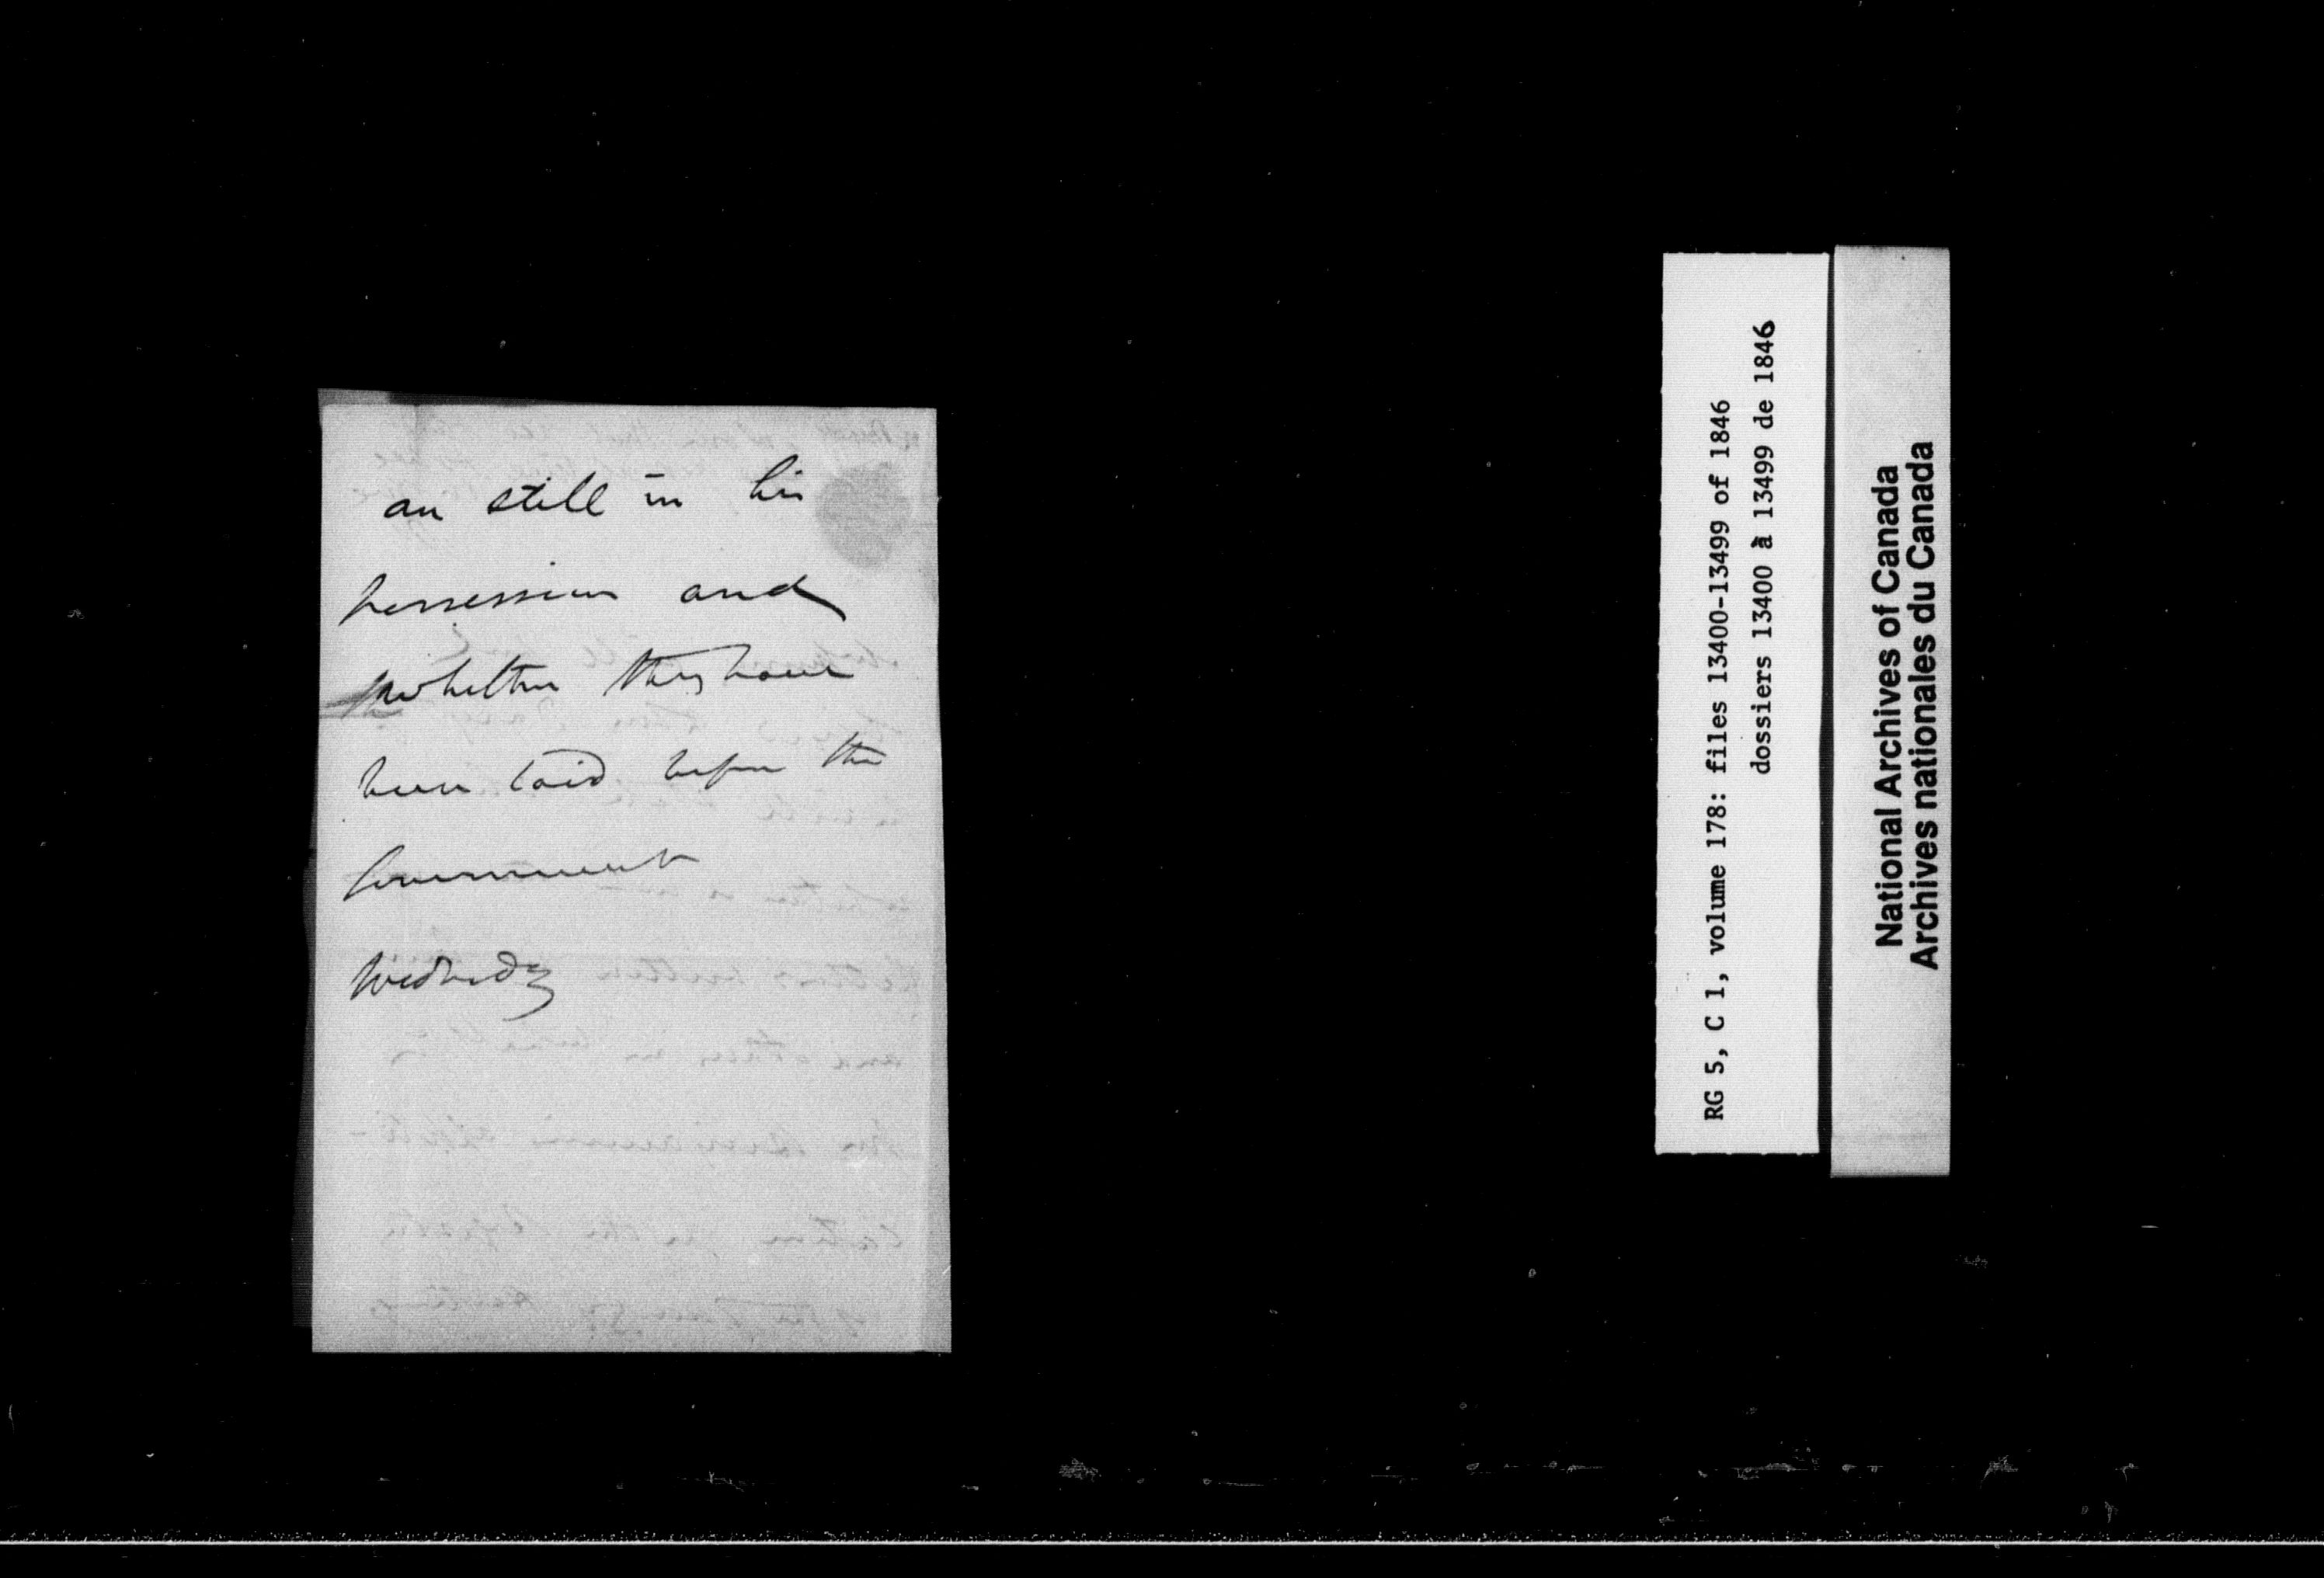 are still in his
possession and
whether they have
been laid before the
Government
Wednesday
RG 5, C 1, volume 178: files 13400-13499 of 1846
dossiers 13400 à 13499 de 1846
National Archives of Canada
Archives nationales du Canada